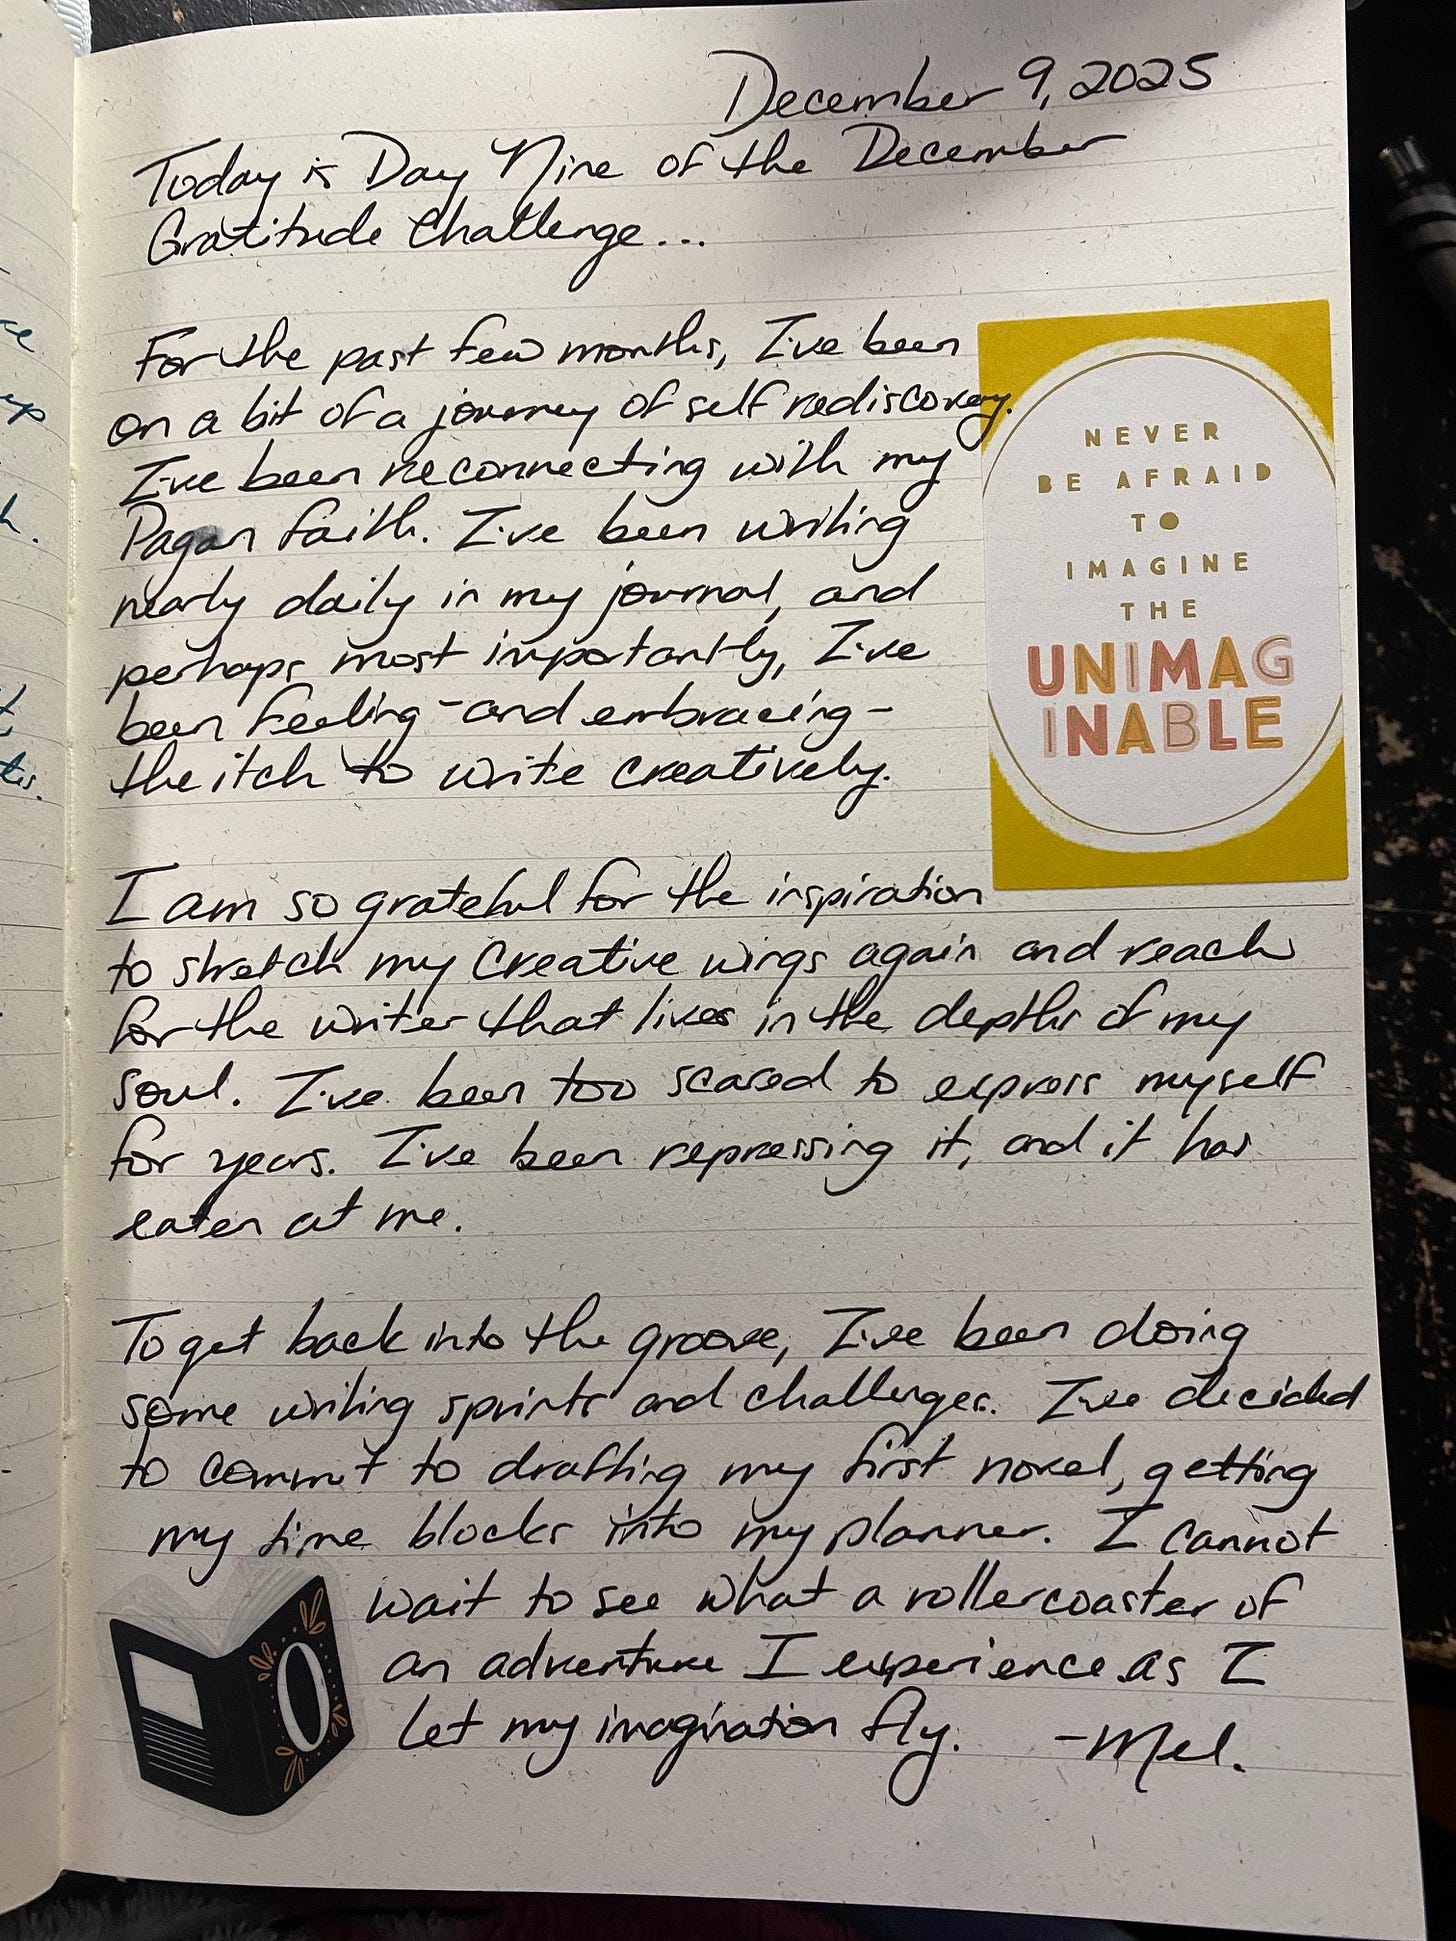 December 9, 2025
Today is Day Nine of the December
Gratitude Challenge...
For the past few months, I've been
on a bit of a journey of self rediscovery.
I've been reconnecting with my
Pagan faith. I've been writing
nearly daily in my journal, and
perhaps most importantly, I've
been feeling - and embracing -
the itch to write creatively.
NEVER
BE AFRAID
TO
IMAGINE
THE
UNIMAG
INABLE
I am so grateful for the inspiration
to stretch my creative wings again and reach
for the writer that lives in the depths of my
soul. I've been too scared to express myself
for years. I've been repressing it, and it has
eaten at me.
To get back into the groove, I've been doing
some writing sprints and challenges. I've decided
to commit to drafting my first novel, getting
my time blocks into my planner. I cannot
wait to see what a rollercoaster of
an adventure I experience as I
let my imagination fly. -Mel.